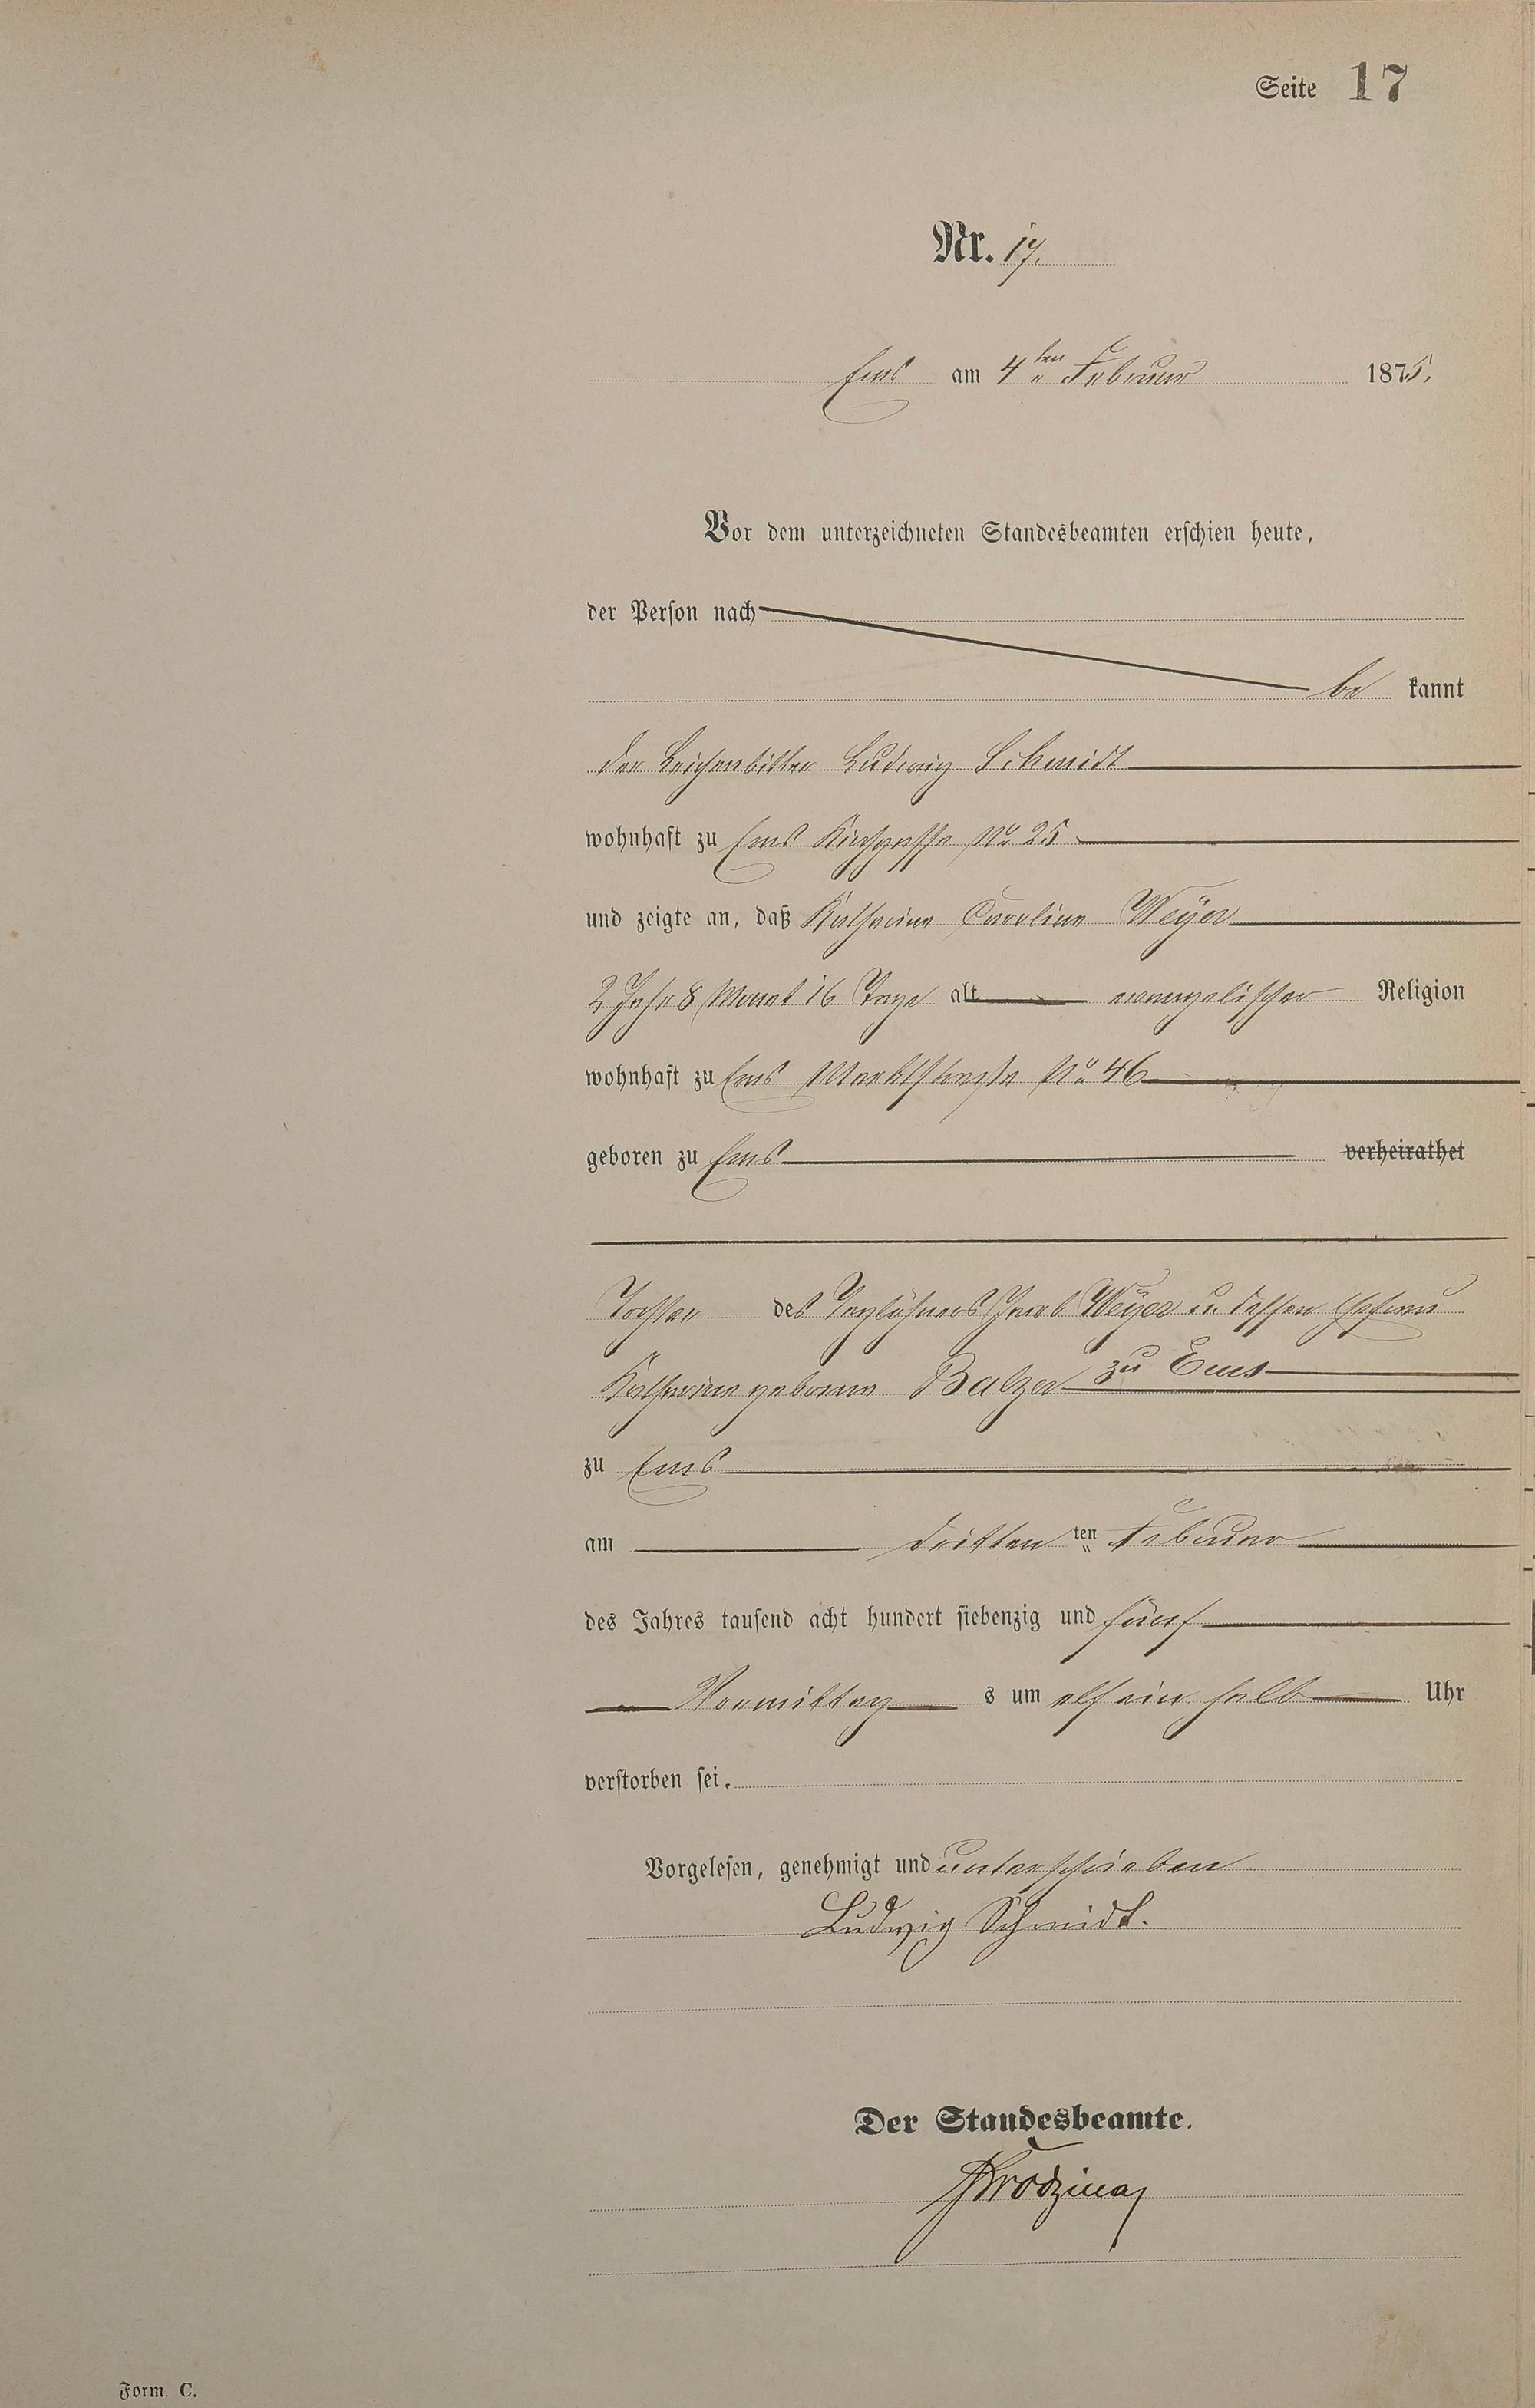 Seite 17
Nr. 17.
Ems am 4ten Februar 1875.
Vor dem unterzeichneten Standesbeamten erschien heute,
der Person nach
be kannt
der Leichenbitter Ludwig Schmidt
wohnhaft zu Ems Kirchgasse No 25
und zeigte an, daß Katharina Caroline Meÿer
2 Jahr 8 Monat 16 Tage alt evangelischer Religion
wohnhaft zu Ems Marktstraße No 46
geboren zu Ems verheirathet
Tochter des Taglöhners Jacob Meÿer u. dessen Ehefrau
Katharina geborne Balzer zu Ems
zu Ems
am dritten ten Februar
des Jahres tausend acht hundert siebenzig und fünf
Vormittag s um elf ein halb Uhr
verstorben sei.
Vorgelesen, genehmigt und unterschrieben
Ludwig Schmidt.
Der Standesbeamte.
Form. C.